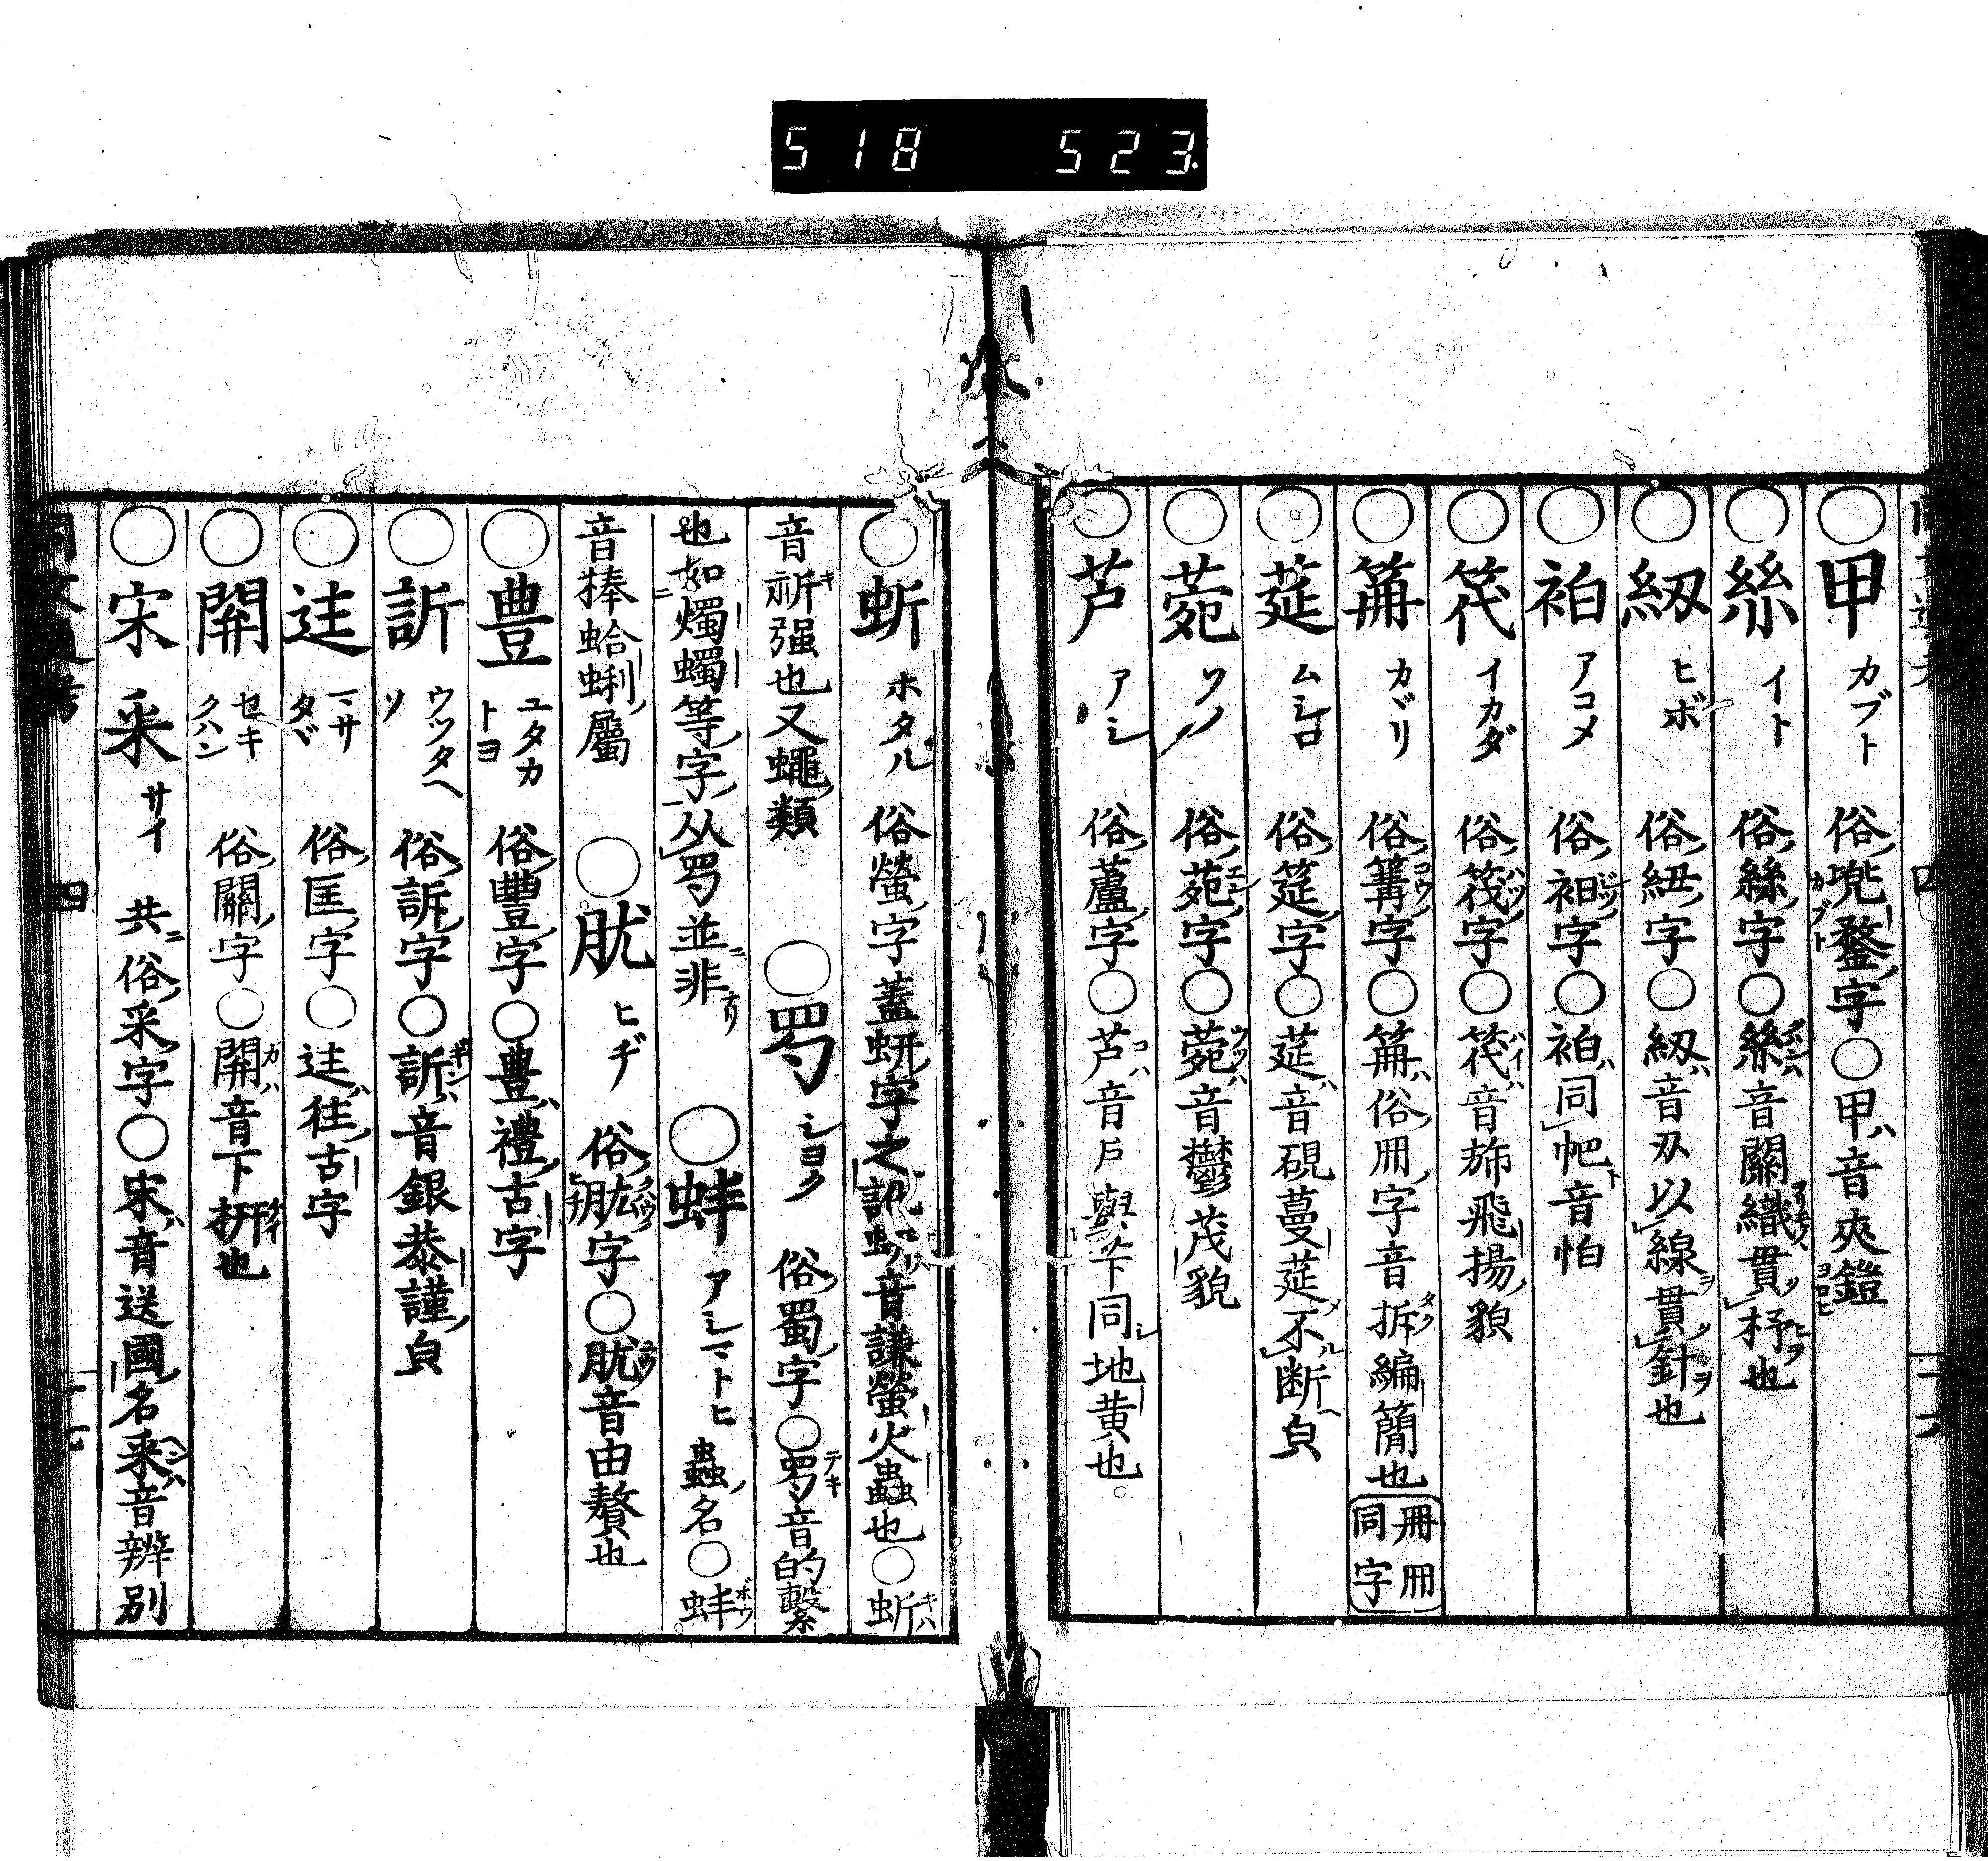 518 523
○甲 カブト 俗兠鍪字○甲ハ音夾鎧
○絲 イト 俗絲字○絲ハ音關織貫杼也
○紉 ヒボ 俗紐字○紉ハ音刄以線貫針也
○袙 アコメ 俗衵字○袙ハ同帊音怕
○茷 イカダ 俗筏字○茷ハ音斾飛揚貌
○篝 カヾリ 俗篝字○ハ俗冊字音拆編簡也 冊冊同字
○莚 ムシロ 俗筵字○莚ハ音硯蔓莚不断皃
○菀 ソノ 俗苑字○菀ハ音鬱茂貌
○芦 アシ 俗蘆字○芦ハ音戶與芐同地黄也
○蚚 ホタル 俗螢字蓋蚈字之訛蚈ハ音謙螢火蟲也○蚚ハ
音祈强也又蠅類 ○䍁 ショク 俗蜀字○䍁音的繫
也如燭蠋等字从䍁並非 ○蚌 アシマトヒ 蟲名○蚌
音棒蛤蜊屬 ○肬 ヒヂ 俗肱字○肬音由贅也
○豊 ユタカ トヨ 俗豐字○豊ハ禮古字
○訢 ウツタヘ ソ 俗訴字○訢ハ音銀恭謹皃
○迬 マサ タヾ 俗匡字○迬ハ往古字
○開 セキ クハン 俗關字○開ハ音下也
○宋 采 サイ 共俗采字○宋ハ音送國名釆ハ音辨别